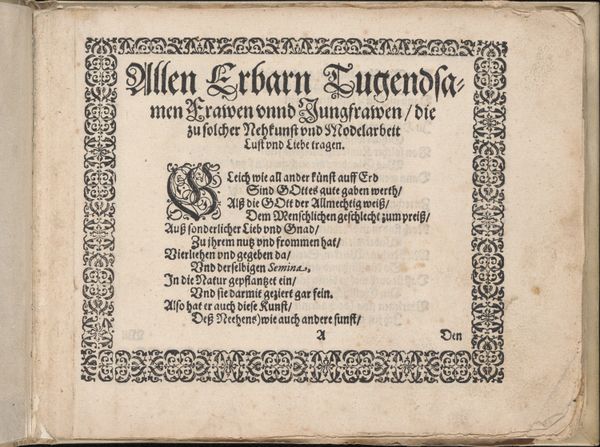 Allen Erbarn Tugendsa-
men Frawen vnnd Jungfrawen / die
zu solcher Nehkunst vnd Modelarbeit
Lust vnd Liebe tragen.
GLeich wie all ander künst auff Erd
Sind GOttes gute gaben werth /
Alß die GOtt der Allmechtig weiß /
Dem Menschlichen geschlecht zum preiß /
Auß sonderlicher Lieb vnd Gnad /
Zu jhrem nutz vnd frommen hat /
Vierliehen vnd gegeben da /
Vnd derselbigen Semina,
In die Natur gepflantzet ein /
Vnd sie darmit geziert gar fein.
Also hat er auch diese Kunst /
Deß Neehens) wie auch andere sunst /
A
Den